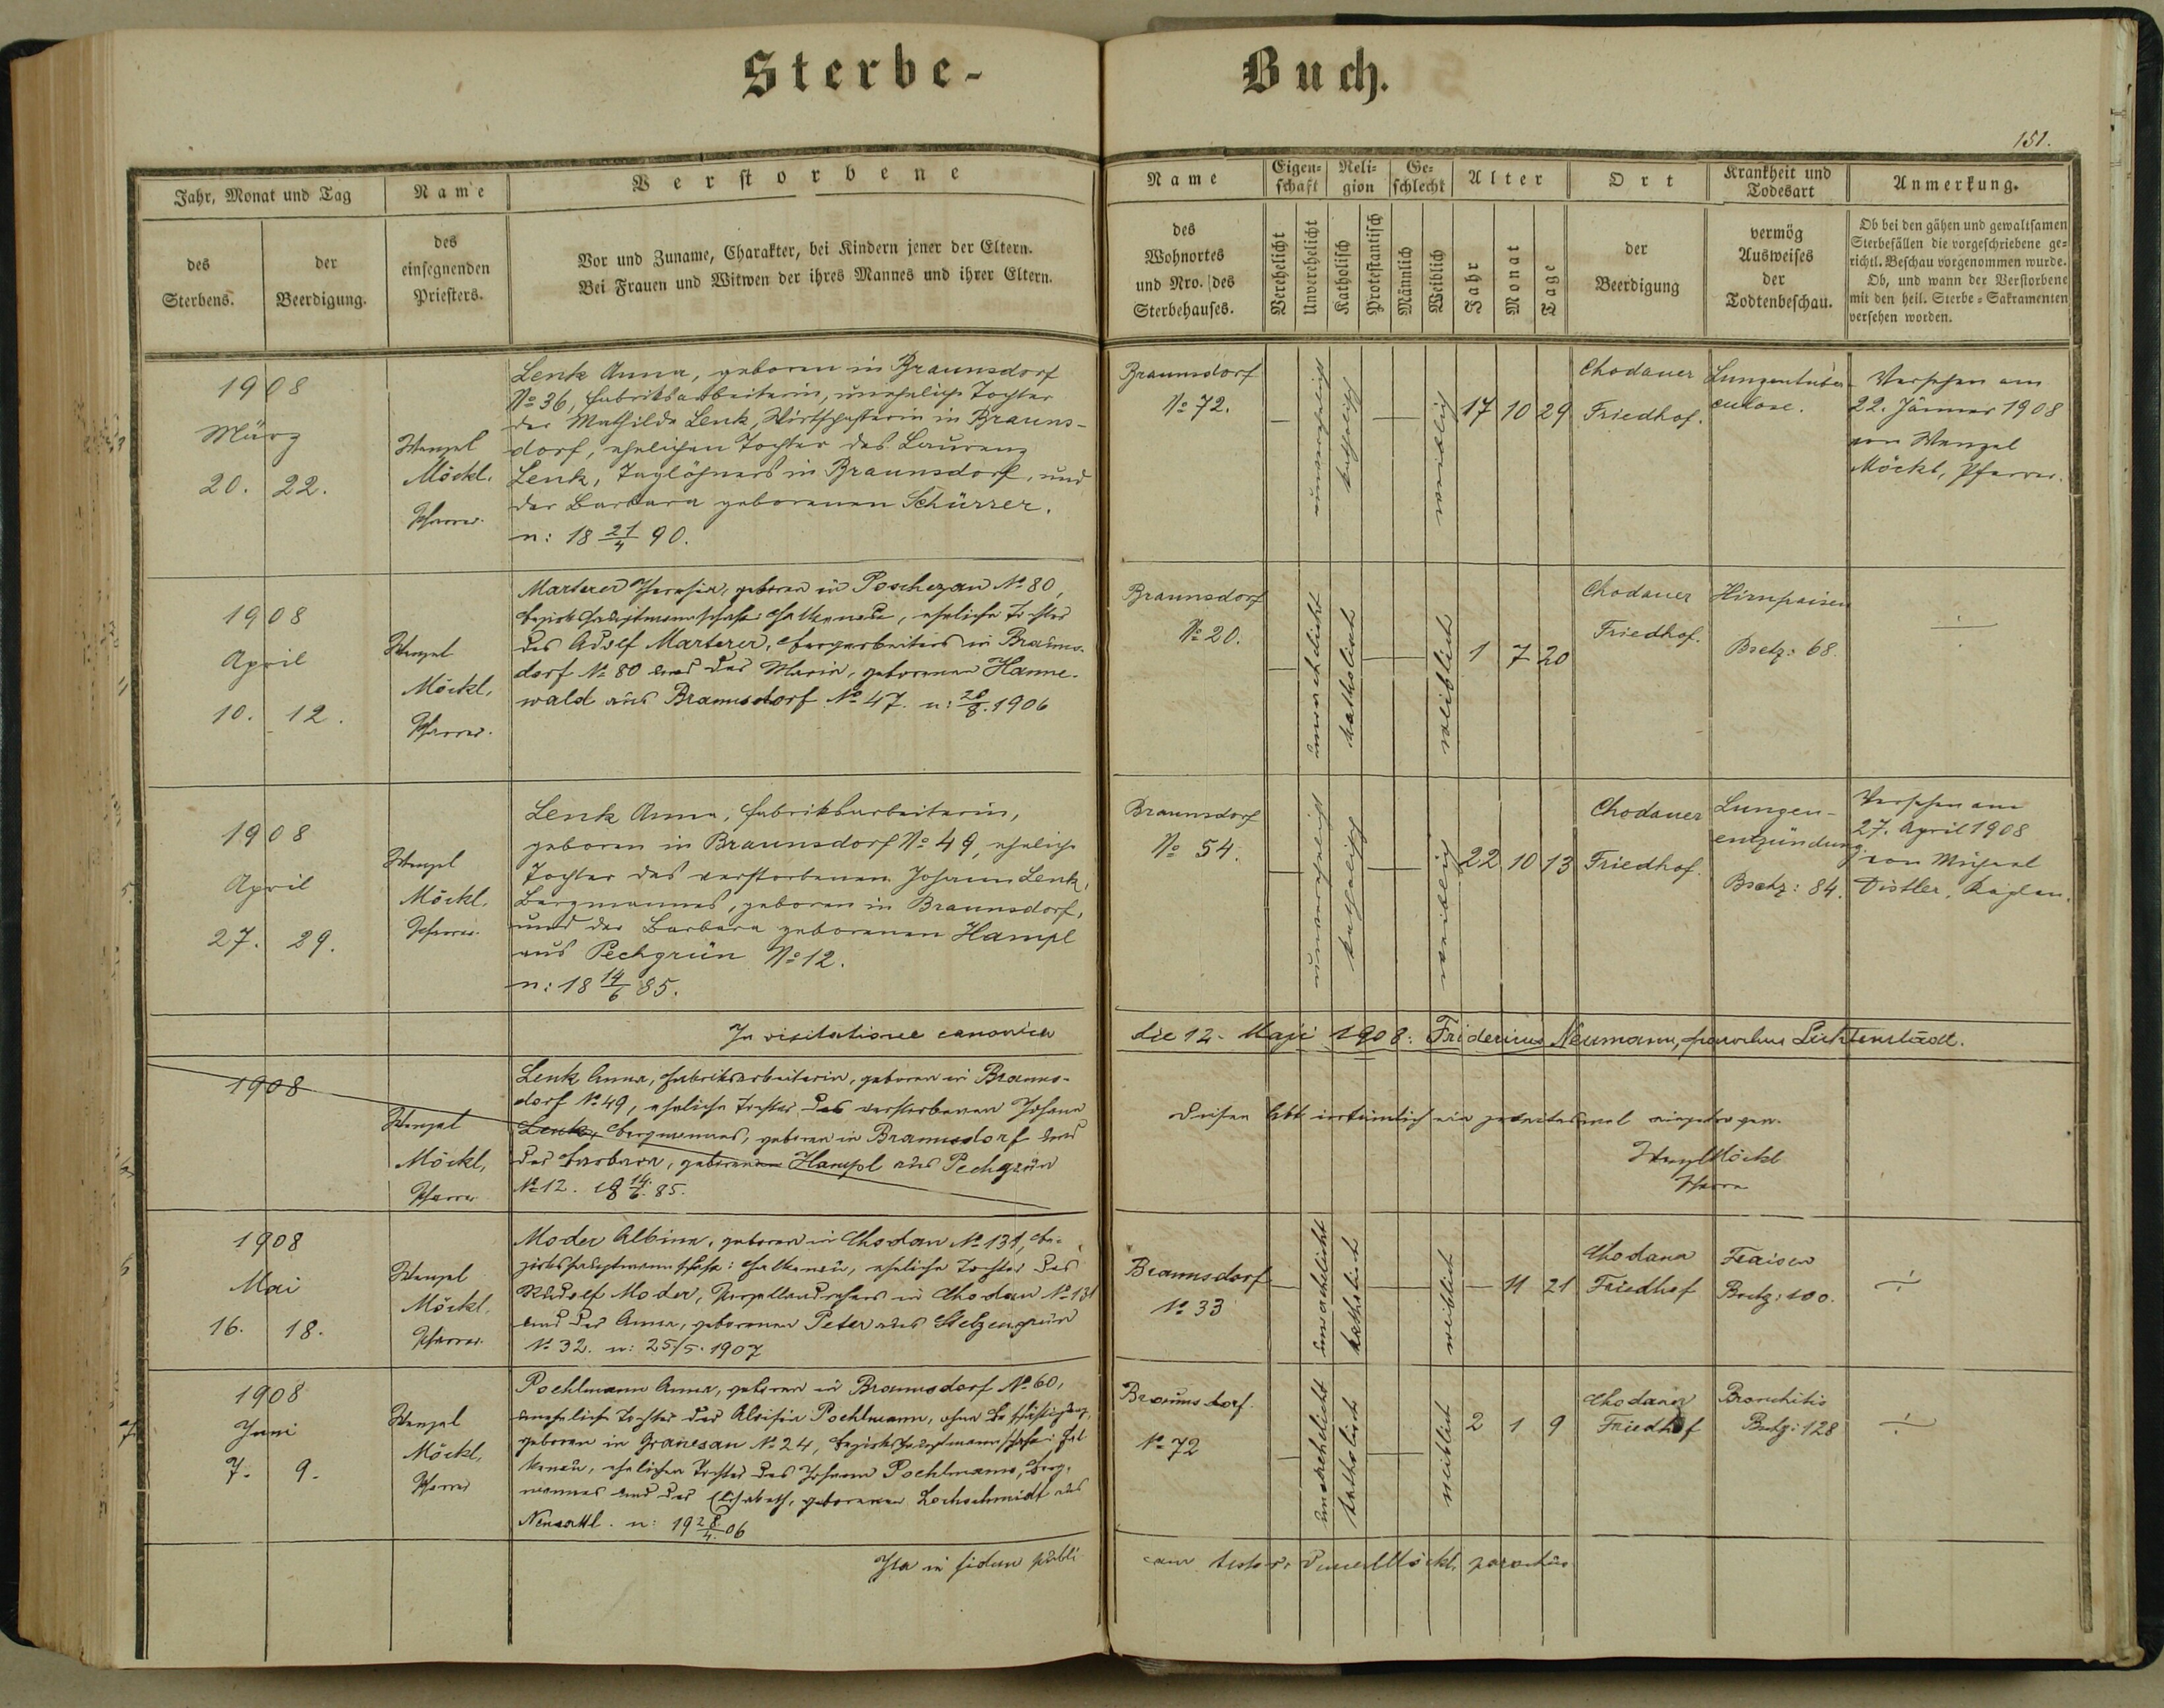 Sterbe-
Buch.
151.
Jahr, Monat und Tag
Name
Verstorbene
des
Sterbens.
der
Beerdigung.
des
einsegnenden
Priesters.
Vor und Zuname, Charakter, bei Kindern jener der Eltern.
Bei Frauen und Witwen der ihres Mannes und ihrer Eltern.
Name
Eigen-
schaft
Reli-
gion
Ge-
schlecht
Alter
Ort
Krankheit und
Todesart
Anmerkung.
des
Wohnortes
und Nro. des
Sterbehauses.
Verehelicht
Unverehelicht
Katholisch
Protestantisch
Männlich
Weiblich
Jahr
Monat
Tage
der
Beerdigung
vermög
Ausweises
der
Todtenbeschau.
Ob bei den gähen und gewaltsamen
Sterbefällen die vorgeschriebene ge-
richtl. Beschau vorgenommen wurde.
Ob, und wann der Verstorbene
mit den heil. Sterbe-Sakramenten
versehen worden.
1908
März
20. 22.
Wenzel
Möckl,
Pfarrer.
Lenk Anna, geboren in Braunsdorf
No 36, Fabriksarbeiterin, uneheliche Tochter
der Mathilde Lenk, Wirtschafterin in Brauns-
dorf, ehelichen Tochter des Laurenz
Lenk, Taglöhners in Braunsdorf, und
der Barbara geborenen Schürrer.
n: 18 21/4 90.
Braunsdorf
No 72.
unverehelicht
katholisch
weiblich
17 10 29
Chodauer
Friedhof.
Lungentuber-
culose.
Versehen am
22. Jänner 1908
von Wenzel
Möckl, Pfarrer.
1908
April
10. 12.
Wenzel
Möckl,
Pfarrer.
Marterer Theresia, geboren in Poschezau No 80,
Bezirkshauptmannschaft Falkenau, eheliche Tochter
des Adolf Marterer, Bergarbeiters in Brauns-
dorf No 80 und der Maria, geborenen Hanne-
wald aus Braunsdorf No 47. n: 20/8. 1906
Braunsdorf
No 20.
unverehelicht
katholisch
weiblich
1 7 20
Chodauer
Friedhof.
Hirnfraisen
Bsctz: 68.
1908
April
27. 29.
Wenzel
Möckl,
Pfarrer.
Lenk Anna, Fabriksarbeiterin,
geboren in Braunsdorf No 49, eheliche
Tochter des verstorbenen Johann Lenk,
Bergmannes, geboren in Braunsdorf,
und der Barbara geborenen Hampl
aus Pechgrün No 12.
n: 18 14/6 85.
Braunsdorf
No 54.
unverehelicht
katholisch
weiblich
22 10 13
Chodauer
Friedhof.
Lungen-
entzündung
Bsctz: 84.
Versehen am
27. April 1908
von Michael
Distler, Kaplan.
In visitatione canonica
die 12. Maji 1908: Fridericus Neumann, parochus Lichtenstadt.
1908
Wenzel
Möckl,
Pfarrer
Lenk Anna, Fabriksarbeiterin, geboren in Brauns-
dorf No 49, eheliche Tochter des verstorbenen Johann
Lenk, Bergmannes, geboren in Braunsdorf und
der Barbara, geborenen Hampl aus Pechgrün
No 12. 18 14/6. 85.
irrtümlich ein zweitesmal eingetragen.
Wenzl Möckl
Pfarrer
1908
Mai
16. 18.
Wenzel
Möckl,
Pfarrer.
Moder Albina, geboren in Chodau No 131, Be-
zirkshauptmannschaft: Falkenau, eheliche Tochter des
Rudolf Moder, Porzellandrehers in Chodau No 131
und der Anna, geborenen Peter aus Stelzengrün
No 32. n: 25/5. 1907
Braunsdorf
No 33
unverehelicht
katholisch
weiblich
11 21
Chodauer
Friedhof
Fraisen
Bsctz: 100.
1908
Juni
7. 9.
Wenzel
Möckl,
Pfarrer
Pochlmann Anna, geboren in Braunsdorf No 60,
uneheliche Tochter der Aloisia Pochlmann, ohne Beschäftigung,
geboren in Granesau No 24, Bezirkshauptmannschaft: Fal-
kenau, ehelichen Tochter des Johann Pochlmann, Berg-
mannes und der Elisabeth, geborenen Lochschmidt aus
Neusattl. n: 19 28/4. 06
Braunsdorf.
No 72
unverehelicht
katholisch
weiblich
2 1 9
Chodauer
Friedhof
Bronchitis
Bsctz: 128
Ita in fidem publi
cam testor: Möckl, parochus